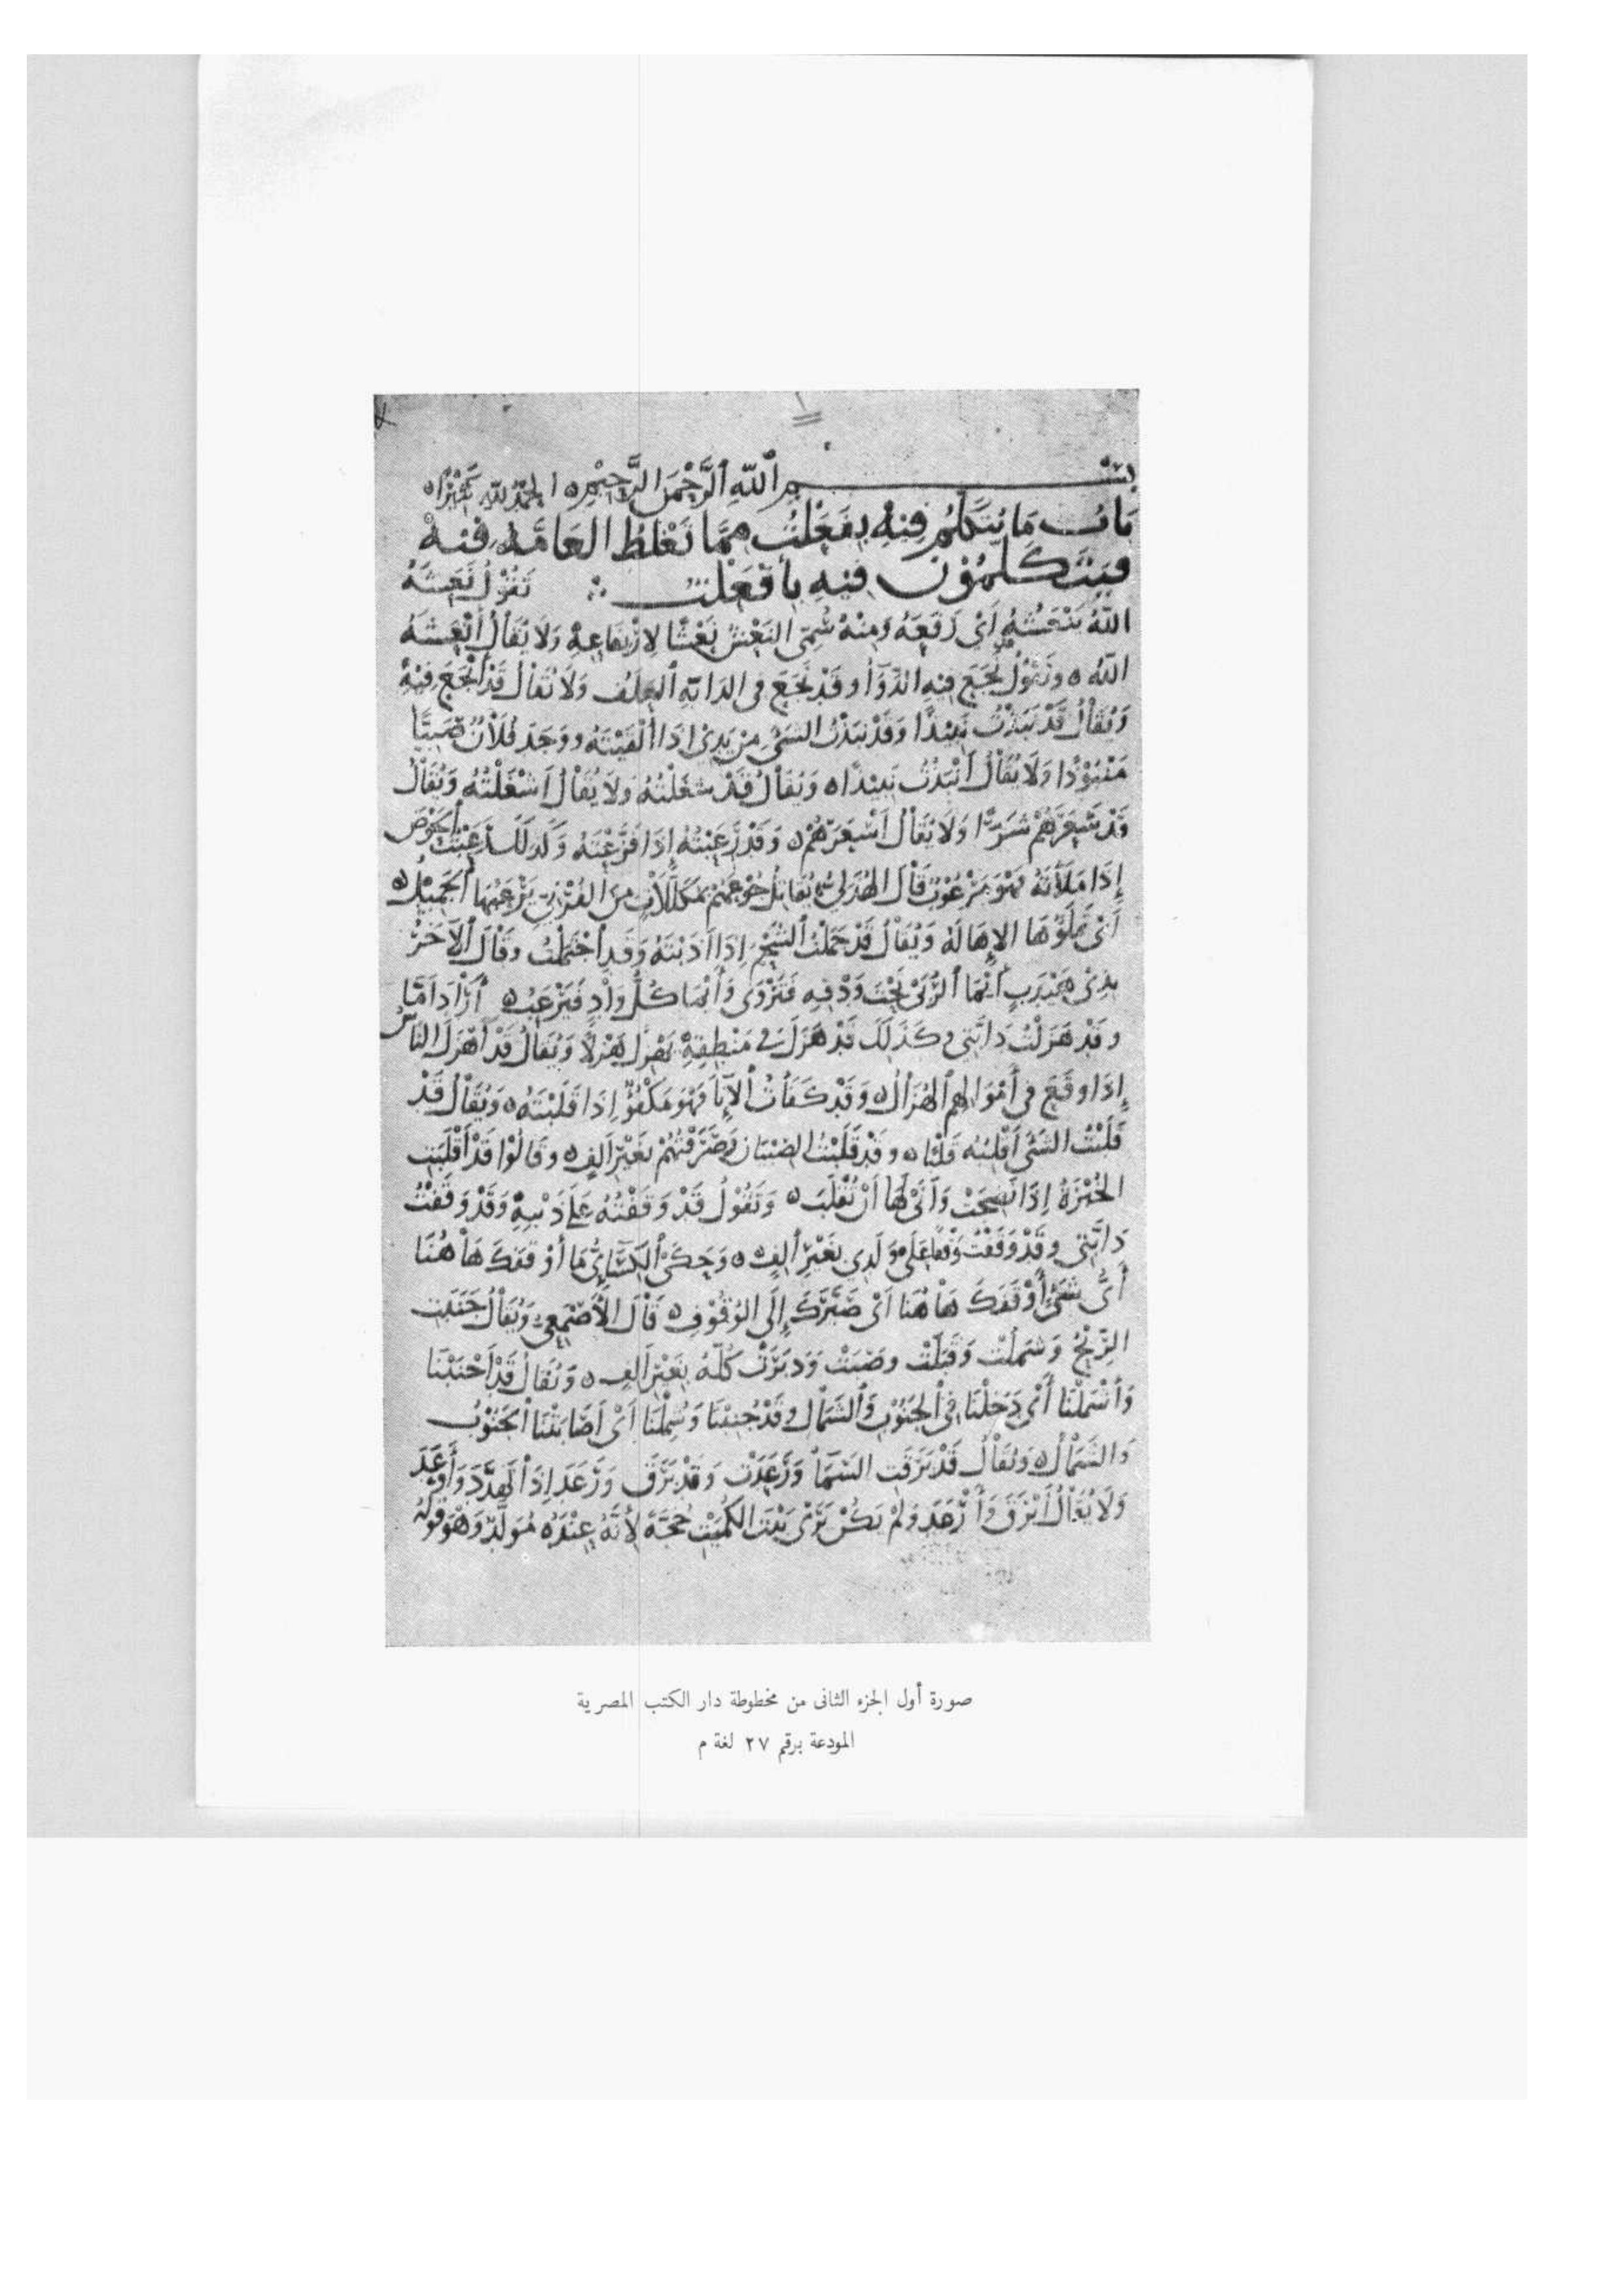 بسم الله الرَّحْمَن الرَّحِيْمِ ه الحمد لله
بَابُ مَا يُتَكَلَّمُ فِيْهِ بِفَعَلْتُ مِمَّا تَغْلَطُ العَامَّة فِيْهِ
فَيَتَكَلَّمُوْنَ فِيْهِ بِأَفْعَلْتُ تَقُوْلُ نَعَشَهُ
اللَّهُ يَنْعَشُهُ أَىْ رَفَعَهُ وَمِنْهُ سُمِّىَ النَعْشُ نَعْشًا لِارْتِفَاعِهِ وَلَا يُقَالُ أَنْعَشَهُ
اللهُ ه وَتَقُوْلُ نَجَعَ فِيهِ الدَّوَآءُ وقَدْ نَجَعَ فى الدَابَّةِ العَلَفُ وَلَا يُقَالُ قَدْ أَنْجَعَ فِيْهِ
وَيُقَالُ قَدْ نَبَذْتُ نَبِيْذًا وَقَدْ نَبَذْتُ الشَىْءَ مِنْ يَدِىْ إذَا أَلْقَيْتَهُ ووَجَدَ فُلَانٌ صَبِيًّا
مَنْبُوْذًا وَلَا يُقَالُ أَنْبَذْتُ نَبِيْذًا ه وَيُقَالُ قَدْ شَغَلْتُهُ وَلَا يُقَالُ أَشْغَلْتُهُ وَيُقَالُ
قَدْ سَعَرَهُمْ شَرًّا وَلَا يُقَالُ أَسْعَرَهُمْ ه وَقَدْ رَعَبْتُهُ إِذَا فَزَّعْتَهُ وَكَذلكَ رَعَبْتُ الحَوْضَ
إِذَا مَلَأْتَهُ فَهْوَ مَرْعُوْبٌ قَالَ الهُذَلِىُّ يُقَاتِلُ جُوْعَهُمْ بِمُكَلَّلَاتٍ مِنَ الفُرْنِىِّ يَرْعَبُهَا الجَمِيْلُ ه
أَىْ تَمْلَؤُهَا الإِهَالَةُ وَيُقَالُ قَدْ جَمَلْتُ الشَحْمَ إِذَا أَذَبْتَهُ وَقَدِ اجْتَمَلْتُ وقَالَ الآخَرُ
بِذِىْ هَيْدَبٍ أَيْمَا الرُّبَىْ تَحْتَ وَدْقِهِ فَتَرْوَى وَأَيْمَا كُلُّ وَادٍ فَيَرْعَبُ ه أَرَادَ أَمَّا
وقَدْ هَزَلْتُ دَابَّتِى وكَذَلِكَ قَدْ هَزَلَ فى مَنْطِقِهِ يَهْزِلُ هَزْلًا وَيُقَالُ قَدْ أَهْزَلَ النَاسُ
إِذَا وقَعَ فى أَمْوَالِهِمِ الهُزَالُ ه وَقَدْ كَفَأْتُ الإِنَاءَ فَهْوَ مَكْفُوْءٌ إِذَا قَلَبْتَهُ ه وَيُقَالُ قَدْ
قَلَبْتُ الشَىْءَ أَقْلِبُهُ قَلْبًا ه وقَدْ قَلَبْتُ الصِبْيَانَ وَصَرَفْتُهُمْ بِغَيْرِ أَلِفٍ ه وقَالُوْا قَدْ أَقْلَبَتِ
الخُبْزَةُ إِذَا نَضِجَتْ وَأَنَى لَهَا أَنْ تُقْلَبَ ه وَتَقُوْلُ قَدْ وَقَفْتُهُ عَلَى ذَنْبِهِ وَقَدْ وَقَفْتُ
دَابَّتِى وقَدْ وَقَفْتُ وَقْفًا عَلَى وَلَدِى بِغَيْرِ أَلِفٍ ه وَحَكَى الكِسَائِىُّ مَا أَوْقَفَكَ هَاهُنَا
أَىُّ شَىْءٍ أَوْقَفَكَ هَاهُنَا أَىْ صَيَّرَكَ إِلَى الوُقُوْفِ ه قَالَ الأَصْمَعِىُّ وَيُقَالُ جَنَبَتِ
الرِّيْحُ وَشَمَلَتْ وَقَبَلَتْ وصَبَتْ وَدَبَرَتْ كُلُّهُ بِغَيْرِ أَلِفٍ ه وَيُقَالُ قَدْ أَجْنَبْنَا
وَأَشْمَلْنَا أَىْ دَخَلْنَا فِى الجَنُوْبِ وَالشَمَالِ وقَدْ جُنِبْنَا وَشُمِلْنَا أَىْ أَصَابَتْنَا الجَنُوْبُ
وَالشَمَالُ ه وَيُقَالُ قَدْ بَرَقَتِ السَمَآءُ وَرَعَدَتْ وَقَدْ بَرَقَ وَرَعَدَ إِذَا تَهَدَّدَ وَأَوْعَدَ
وَلَا يُقَالُ أَبْرَقَ وَأَرْعَدَ وَلَمْ يَكُنْ يَرَى بَيْتَ الكُمَيْتِ حُجَّةً لأَنَّهُ عِنْدَهُ مُوَلَّدٌ وَهْوَ قَوْلُهُ
صورة أول الجزء الثانى من مخطوطة دار الكتب المصرية
المودعة برقم ٢٧ لغة م